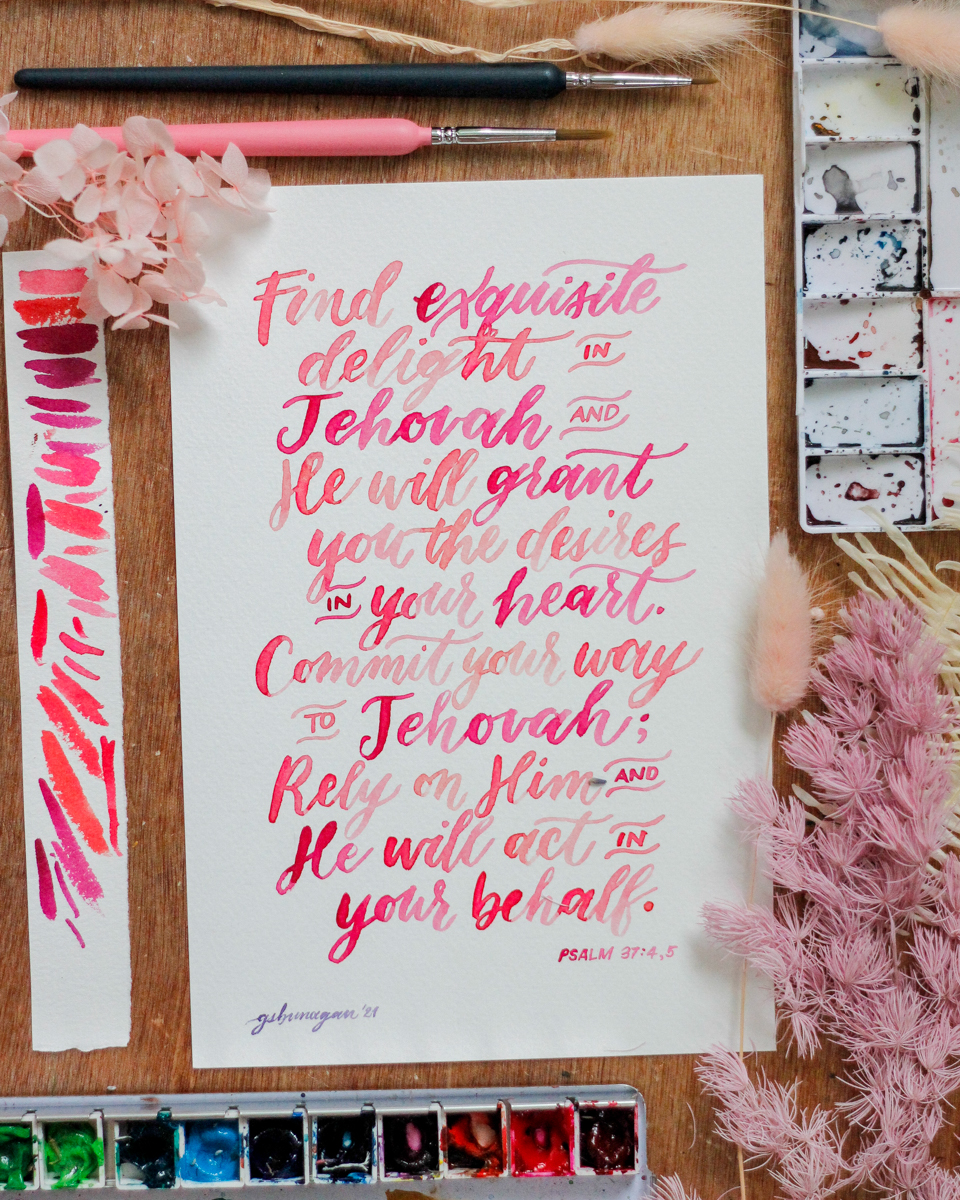 Find exquisite
delight IN
Jehovah AND
He will grant
you the desires
IN your heart.
Commit your way
TO Jehovah;
Rely on Him AND
He will act IN
your behalf.
PSALM 37:4,5
gsbunagan '21